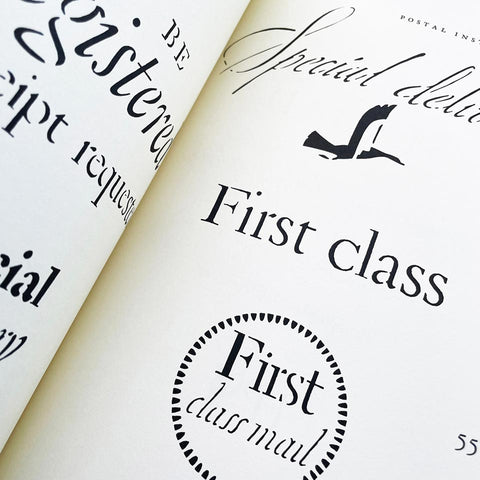 BE
gistered
eipt requeste
cial
ry
POSTAL INST
Special deliv
First class
First
class mail
55